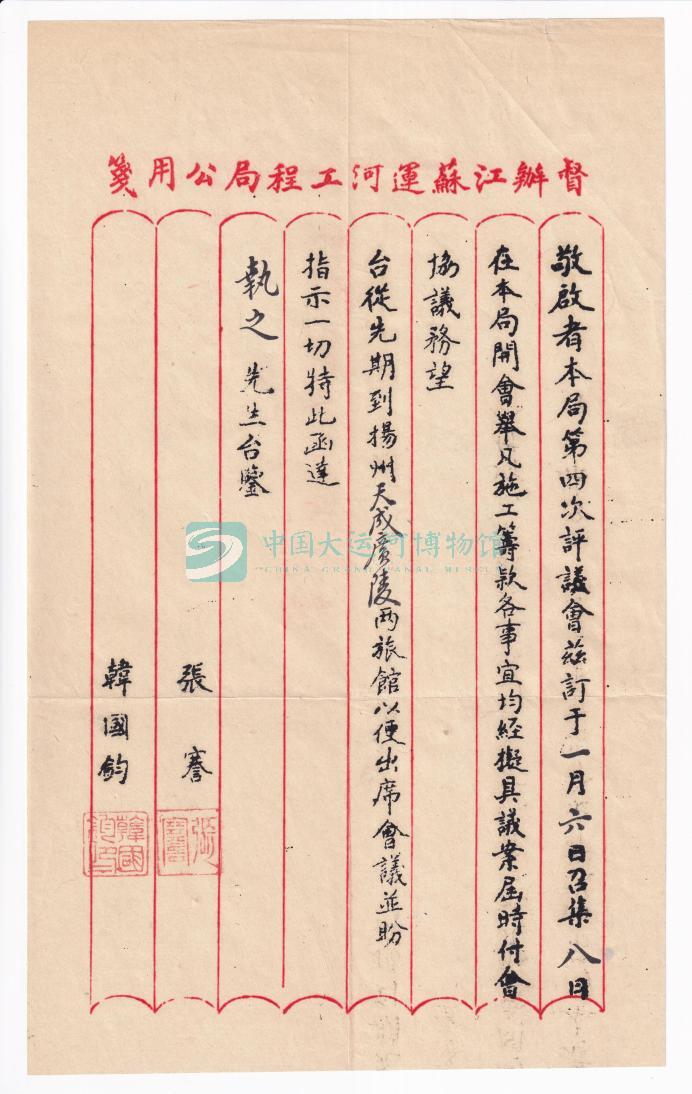 督辦江蘇運河工程局公用箋
敬啟者本局第四次評議會茲訂于一月六日召集八日
在本局開會舉凡施工籌款各事宜均經擬具議案屆時付會
協議務望
台從先期到揚州天成廣陵兩旅館以便出席會議並盼
指示一切特此函達
執之先生台鑒
張謇
韓國鈞
中国大运河博物馆
CHINA GRAND CANAL MUSEUM